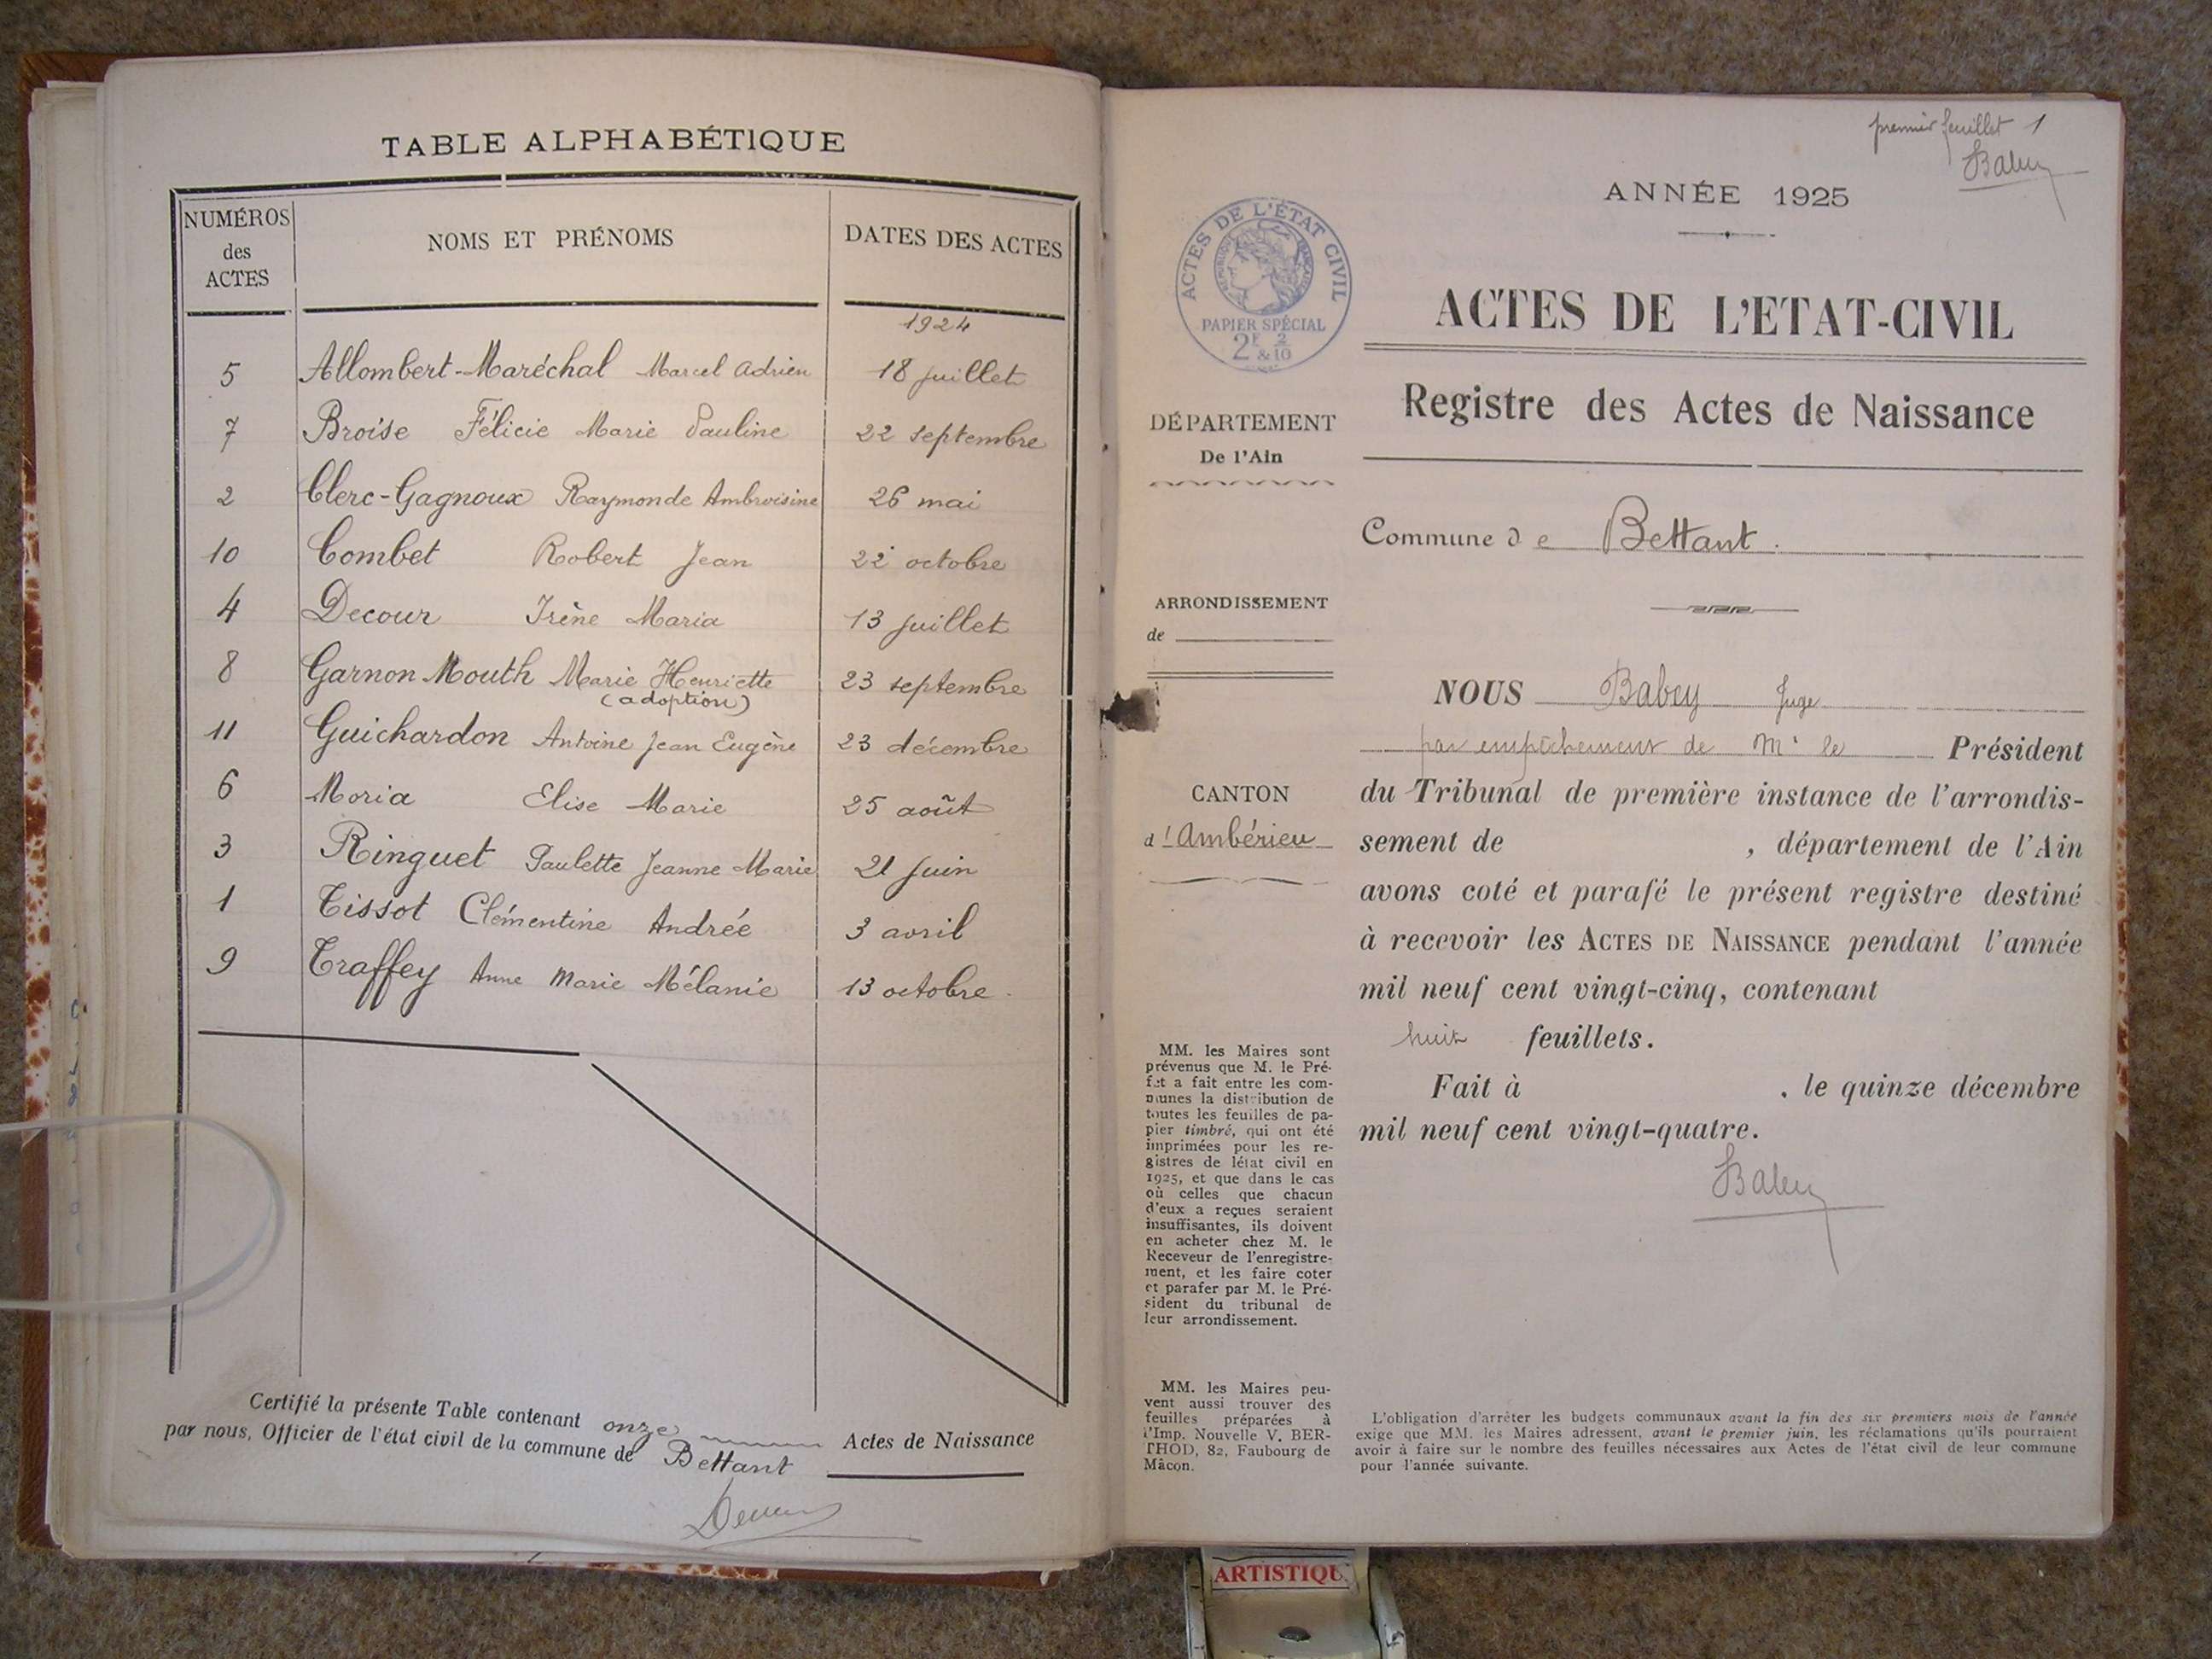 TABLE ALPHABÉTIQUE
NUMÉROS
des
ACTES
NOMS ET PRÉNOMS
DATES DES ACTES
1924
5 Allombert-Maréchal Marcel Adrien 18 juillet
7 Broise Félicie Marie Pauline 22 septembre
2 Clerc-Gagnoux Raymonde Ambroisine 26 mai
10 Combet Robert Jean 22 octobre
4 Decour Irène Maria 13 juillet
8 Garnon Mouth Marie Henriette 23 septembre
(adoption)
11 Guichardon Antoine Jean Eugène 23 décembre
6 Moria Elise Marie 25 août
3 Ringuet Paulette Jeanne Marie 21 juin
1 Tissot Clémentine Andrée 3 avril
9 Traffey Anne Marie Mélanie 13 octobre
Certifié la présente Table contenant onze Actes de Naissance
par nous, Officier de l'état civil de la commune de Bettant
premier feuillet 1
Babey
ANNÉE 1925
ACTES DE L'ÉTAT CIVIL
RÉPUBLIQUE FRANÇAISE
PAPIER SPÉCIAL
2F 2
& 10
ACTES DE L'ETAT-CIVIL
Registre des Actes de Naissance
DÉPARTEMENT
De l'Ain
Commune de Bettant.
ARRONDISSEMENT
de
CANTON
d'Ambérieu
NOUS Babey Juge
par empêchement de Mr le Président
du Tribunal de première instance de l'arrondis-
sement de , département de l'Ain
avons coté et parafé le présent registre destiné
à recevoir les ACTES DE NAISSANCE pendant l'année
mil neuf cent vingt-cinq, contenant
huit feuillets.
Fait à , le quinze décembre
mil neuf cent vingt-quatre.
Babey
MM. les Maires sont
prévenus que M. le Pré-
fet a fait entre les com-
munes la distribution de
toutes les feuilles de pa-
pier timbré, qui ont été
imprimées pour les re-
gistres de létat civil en
1925, et que dans le cas
où celles que chacun
d'eux a reçues seraient
insuffisantes, ils doivent
en acheter chez M. le
Receveur de l'enregistre-
ment, et les faire coter
et parafer par M. le Pré-
sident du tribunal de
leur arrondissement.
MM. les Maires peu-
vent aussi trouver des
feuilles préparées à
l'Imp. Nouvelle V. BER-
THOD, 82, Faubourg de
Mâcon.
L'obligation d'arrêter les budgets communaux avant la fin des six premiers mois de l'année
exige que MM. les Maires adressent, avant le premier juin, les réclamations qu'ils pourraient
avoir à faire sur le nombre des feuilles nécessaires aux Actes de l'état civil de leur commune
pour l'année suivante.
ARTISTIQU